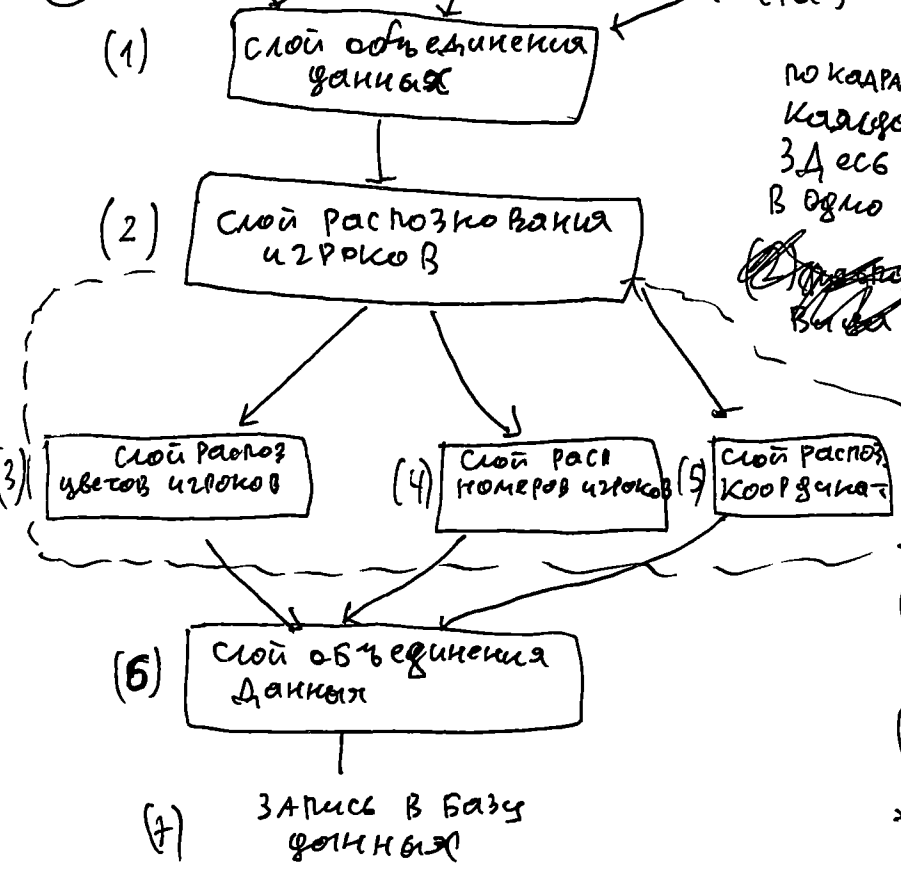 (1)
слой объединения
данных
по кадра
Здесь
в одно
(2)
слой распознования
игроков
(3)
слой распоз
цветов игроков
(4)
слой расп
номеров игроков
(5)
слой распоз
координат
(6)
слой объединения
данных
(7)
запись в базу
данных